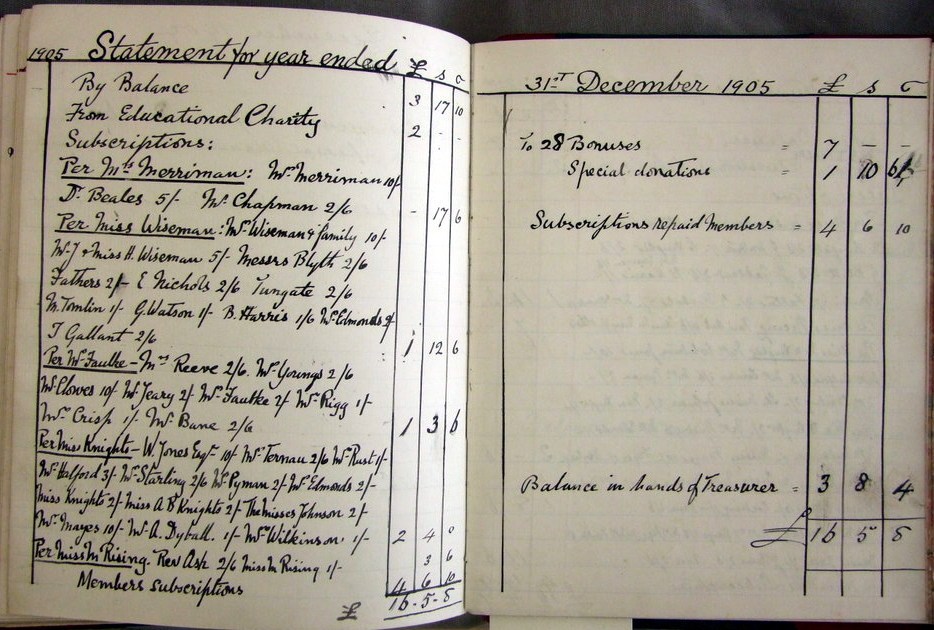 1905 Statement for year ended £ s d
By Balance 3 17 10
From Educational Charity 2 - -
Subscriptions:
Per Mrs Merriman: Mr Merriman 10/-
Dr Beales 5/- Mr Chapman 2/6 - 17 6
Per Miss Wiseman: Mr Wiseman & family 10/-
Mr J & Miss H. Wiseman 5/- Messrs Blyth 2/6
Fathers 2/- E Nichols 2/6 Tungate 2/6
M. Tomlin 1/- G. Watson 1/- B. Harris 1/6 Mr Edmonds 2/-
T Gallant 2/6 1 12 6
Per Mr Faulke - Mrs Reeve 2/6. Mr Youngs 2/6
Mr Clowes 10/- Mr Jeary 2/- Mr Faulke 2/- Mr Rigg 1/-
Mrs Crisp 1/- Mr Bane 2/6 1 3 6
Per Miss Knights - W. Jones Esqr 10/- Mr Ternau 2/6 Mr Rust 1/-
Mr Halford 3/- Mr Starling 2/6 Mr Pyman 2/- Mr Edmonds 2/-
Miss Knights 2/- Miss A B Knights 2/- The Misses Johnson 2/-
Mr Mayes 10/- Mr A. Dyball. 1/- Mr Wilkinson 1/- 2 4 0
Per Miss M Rising. Rev Ash 2/6 Miss M Rising 1/- 3 6
Members Subscriptions 4 6 10
£ 16-5-8
31st December 1905 £ s d
To 28 Bonuses = 7 - -
Special donations = 1 10 6
Subscriptions repaid Members = 4 6 10
Balance in hands of Treasurer = 3 8 4
£ 16 5 8